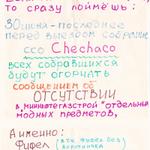 то сразу поймёшь:
30 июня - последнее
перед выездом собрание
ссо Chechaco
всех собравшихся
будут огорчать
сообщением об
ОТСУТСТВИИ
в "отдельных
модных предметов,
А именно:
Фифел